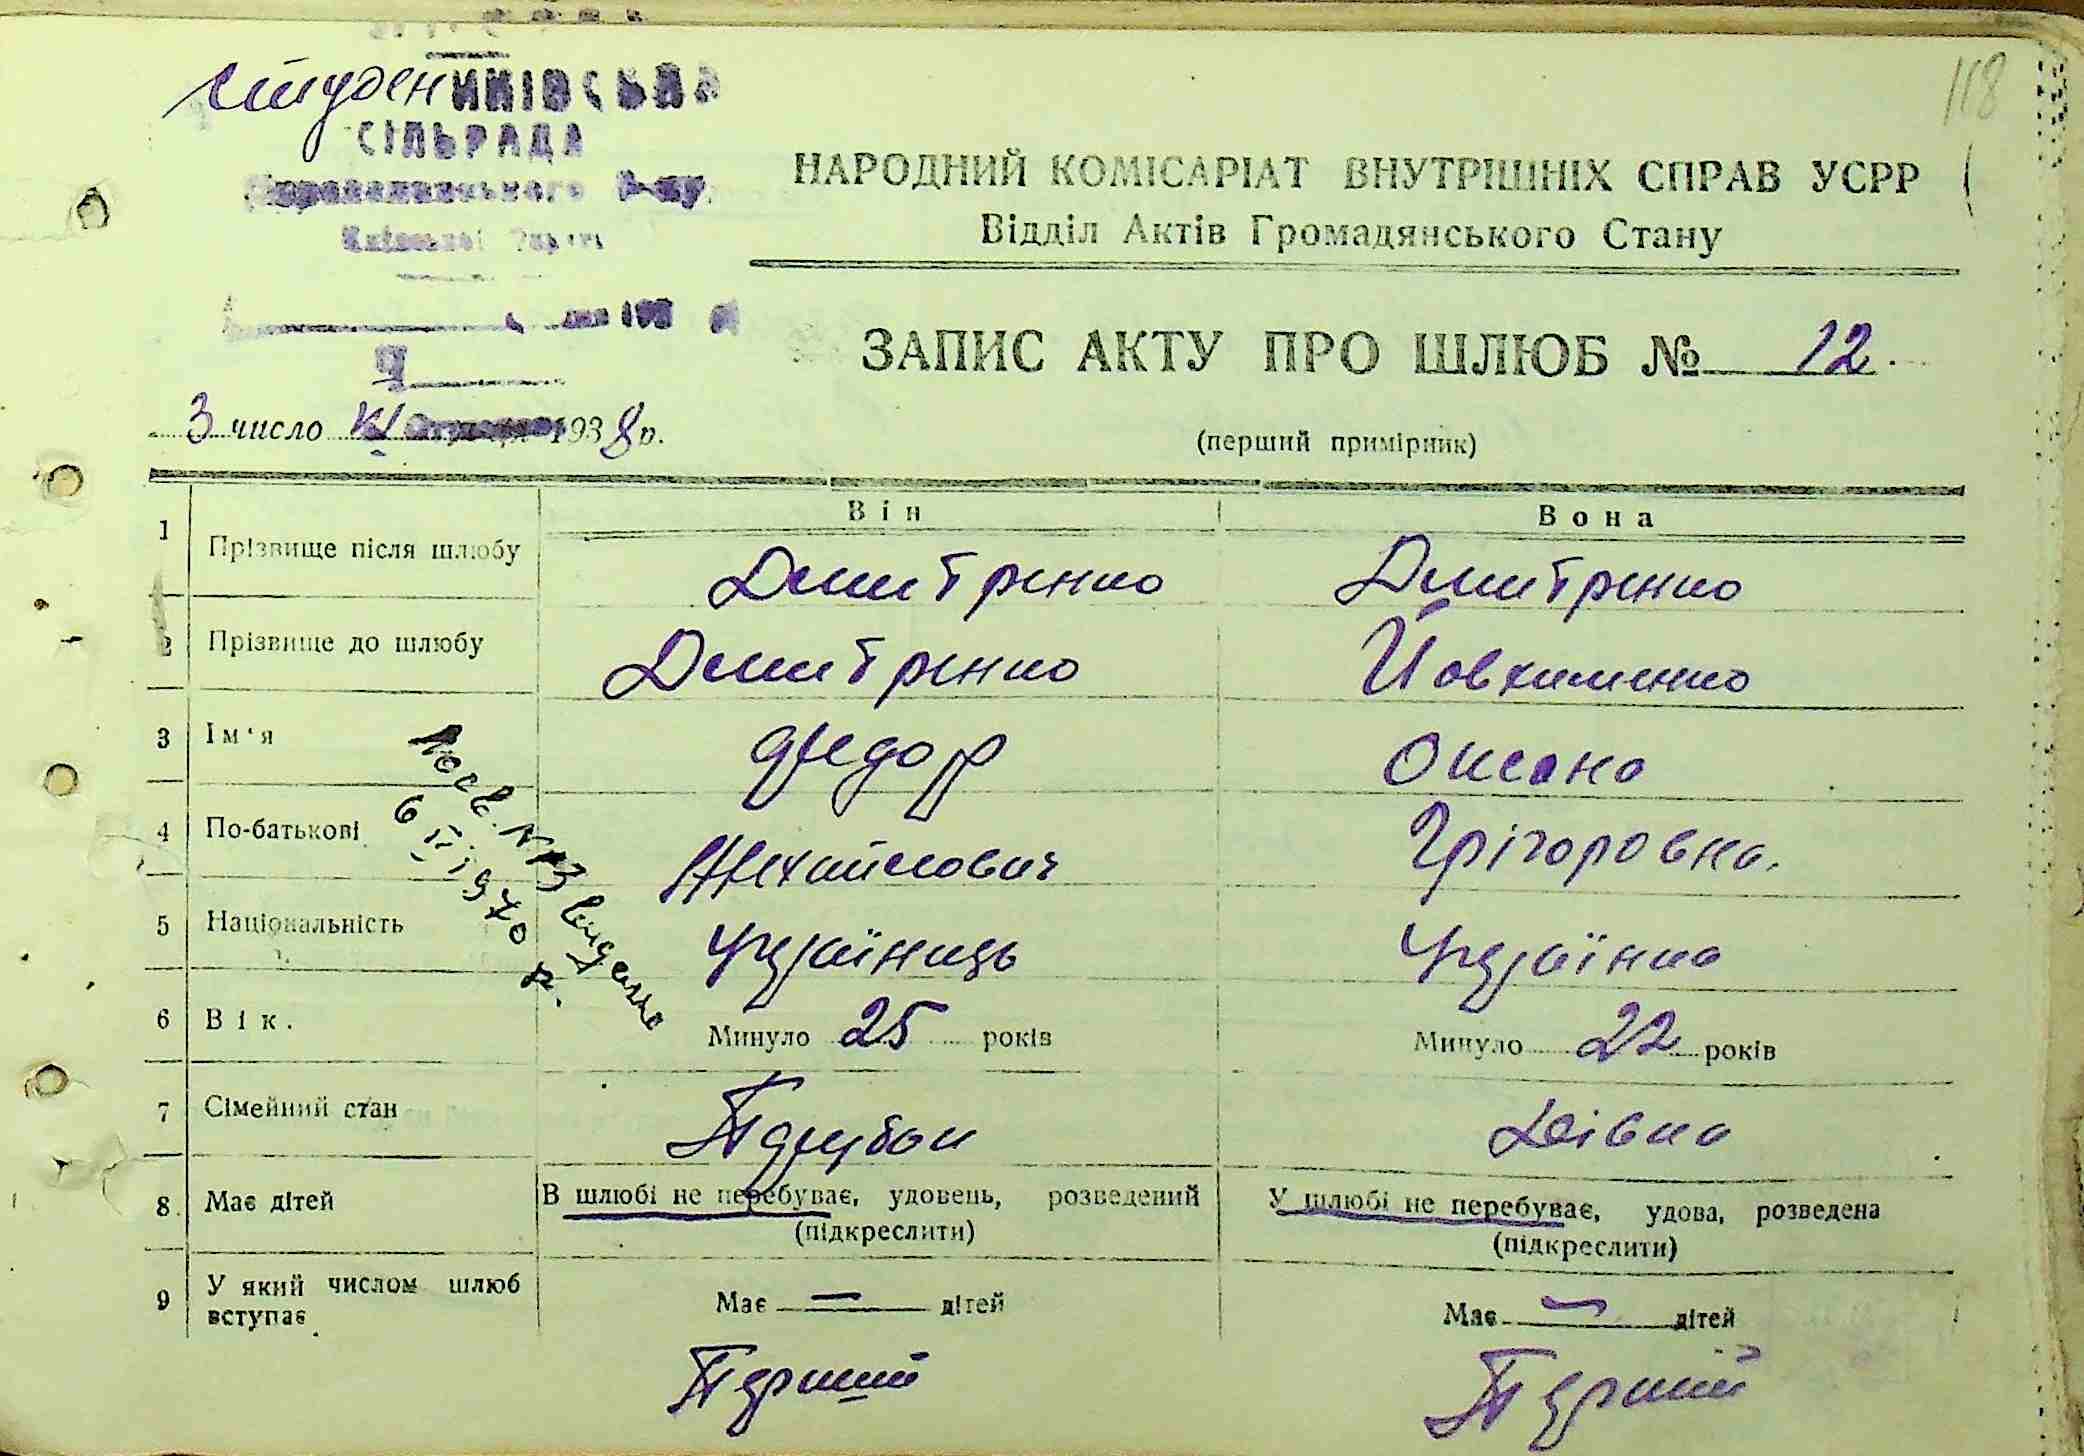 118
СтуденИКІВСЬКА
СІЛЬРАДА
р-ну
НАРОДНИЙ КОМІСАРІАТ ВНУТРІШНІХ СПРАВ УСРР
Відділ Актів Громадянського Стану
ЗАПИС АКТУ ПРО ШЛЮБ № 12
3 число XI 1938 р.
(перший примірник)
Він Вона
1 Прізвище після шлюбу Дмитренко Дмитренко
2 Прізвище до шлюбу Дмитренко Йовхименко
3 Ім'я Федор Оксана
4 По-батькові Михайлович Грігоровна.
5 Національність Українець Українка
6 Вік. Минуло 25 років Минуло 22 років
7 Сімейний стан Дівка
8. Має дітей В шлюбі не перебуває, удовець, розведений У шлюбі не перебуває, удова, розведена
(підкреслити) (підкреслити)
9 У який числом шлюб вступає Має — дітей Має — дітей
Перший Перший
1970 р.